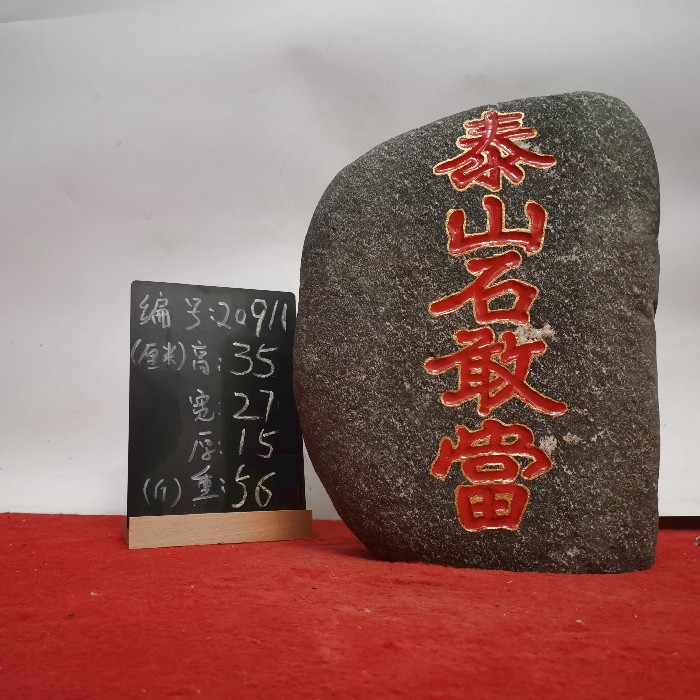 编号:20911
(厘米)高:35
宽:27
厚:15
(斤)重:56
泰山石敢當